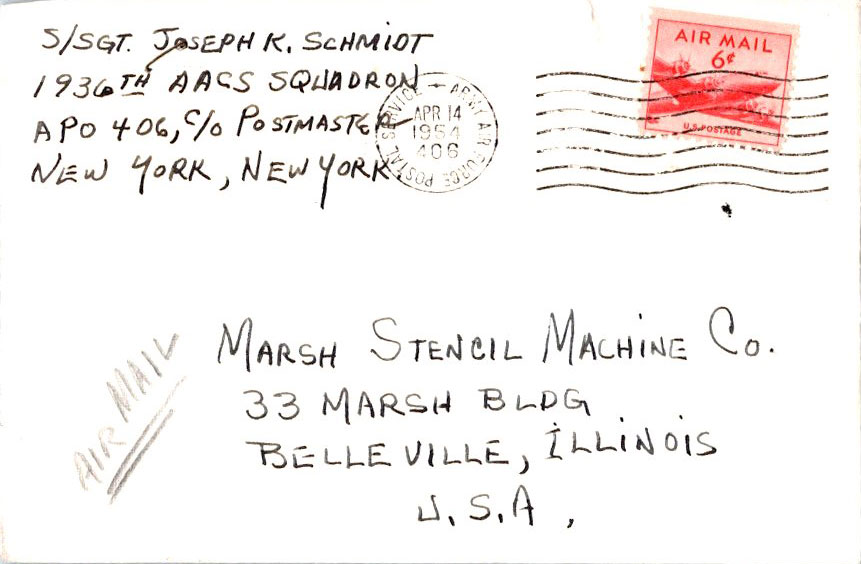 S/SGT. JOSEPH K. SCHMIDT
1936TH AACS SQUADRON
APO 406, C/O POSTMASTER
NEW YORK, NEW YORK
ARMY AIR FORCE POSTAL SERVICE
APR 14
1954
406
AIR MAIL
6¢
U.S. POSTAGE
MARSH STENCIL MACHINE CO.
33 MARSH BLDG
BELLEVILLE, ILLINOIS
U.S.A,
AIR MAIL